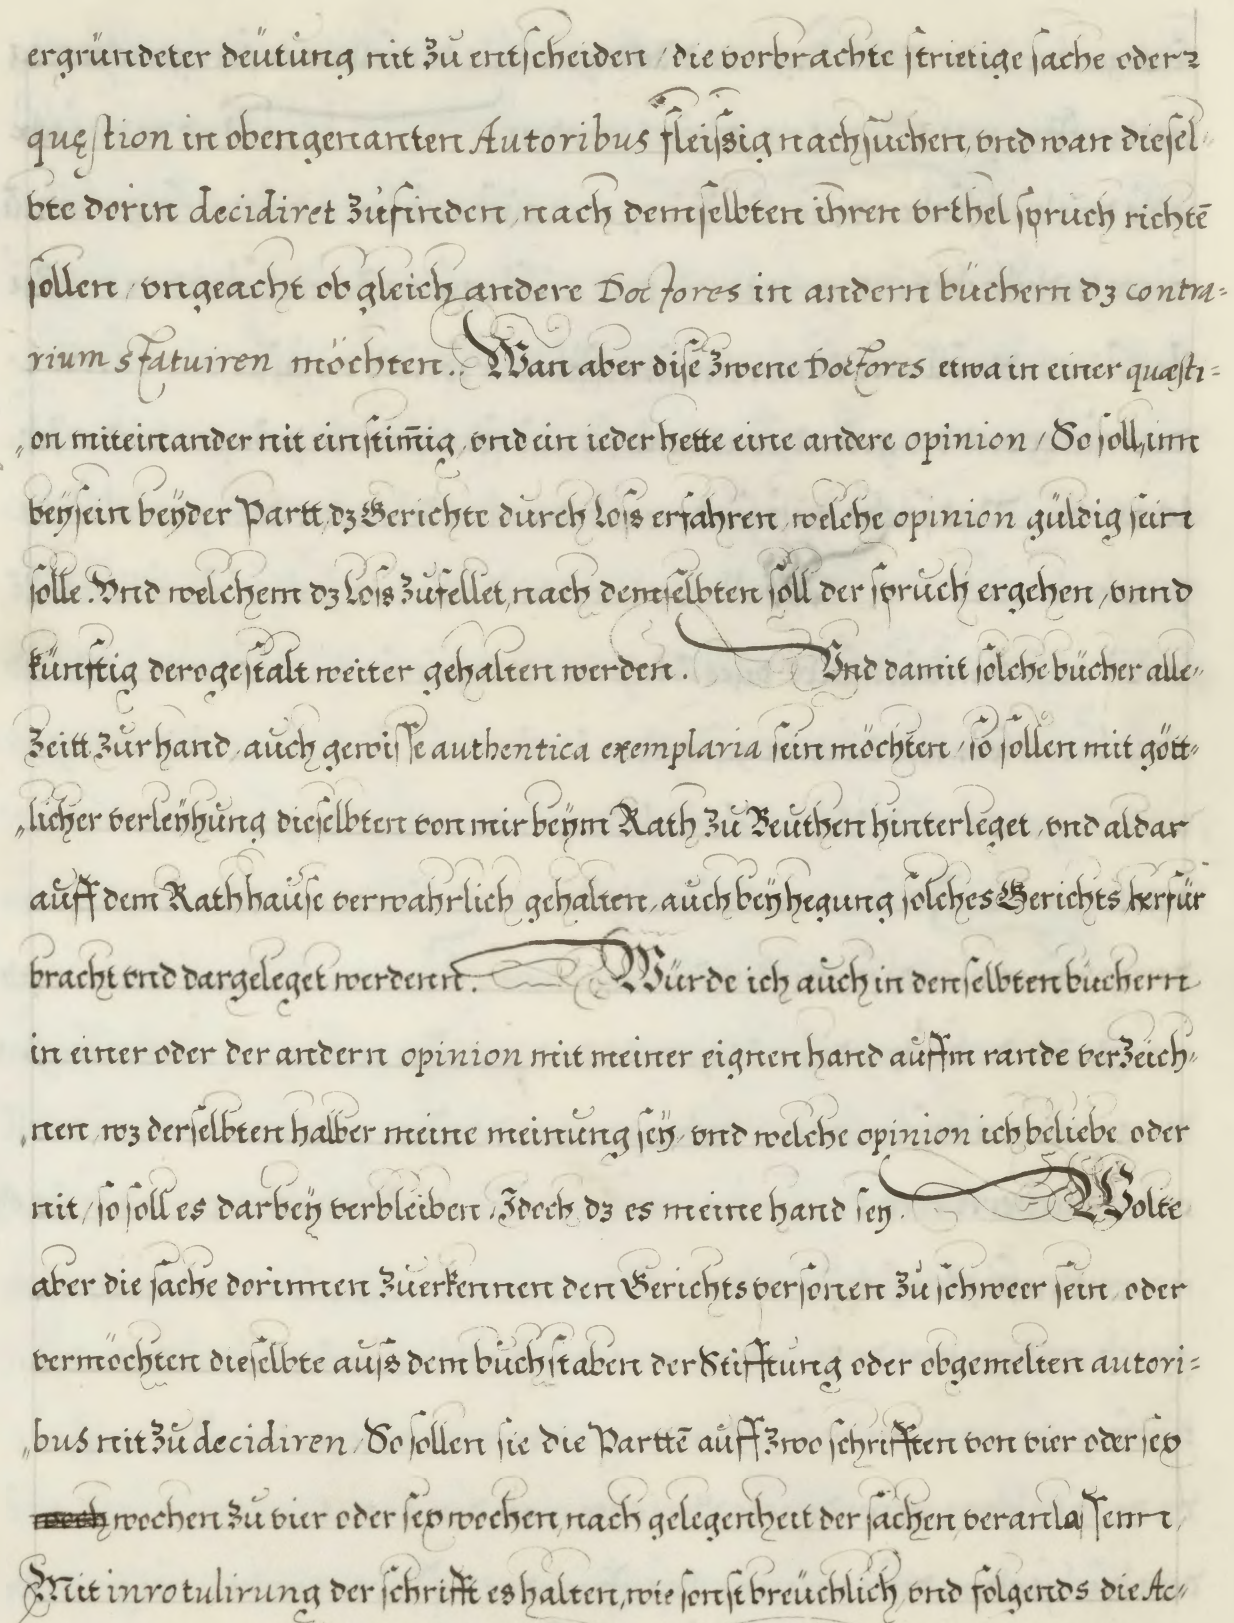 ergründeter deütung nit zu entscheiden / die vorbrachte strietige sache oder
quęstion in obengenanten Autoribus fleissig nachsuchen, vnd wan diesel-
bte dorin decidiret zufinden, nach demselbten ihren vrthel spruch richtē
sollen / vngeacht ob gleich andere Doctores in andern büchern dz contra=
rium statuiren möchten. Wan aber dise zwene Doctores etwa in einer quæsti=
„on miteinander nit einstim̄ig, vnd ein ieder hette eine andere opinion / So soll, inn
beysein beyder Partt, dz Gerichte durch Loss erfahren, welche opinion güldig sein
solle. Vnd welchem dz Loss zufellet, nach demselbten soll der spruch ergehen, vnnd
künftig derogestalt weiter gehalten werden. Vnd damit solche bücher alle-
Zeitt zur hand, auch gewisse authentica exemplaria sein möchten / so sollen mit gött-
„licher verleyhung dieselbten von mir beym Rath zu Beuthen hinterleget, vnd aldar
auff dem Rathhause verwahrlich gehalten, auch bey hegung solches Gerichts herfür
bracht vnd dargeleget werdenn. Würde ich auch in denselbten büchern
in einer oder der andern opinion mit meiner eignen hand auffm rande verzeich-
„nen, wz derselbten halber meine meinung sey, vnd welche opinion ich beliebe oder
nit / so soll es darbey verbleiben, Jdoch dz es meine hand sey. Wolte
aber die sache dorinnen zuerkennen den Gerichtspersonen zu schweer sein, oder
vermöchten dieselbte auss dem buchstaben der Stifftung oder obgemelten autori=
„bus nit zu decidiren / So sollen sie die Parttē auff zwo schrifften von vier oder sex
wochen zu vier oder sex wochen, nach gelegenheit der sachen, veranlassenn,
Mit inrotulirung der schrifft es halten, wie sonst breuchlich, vnd folgends die Ac-